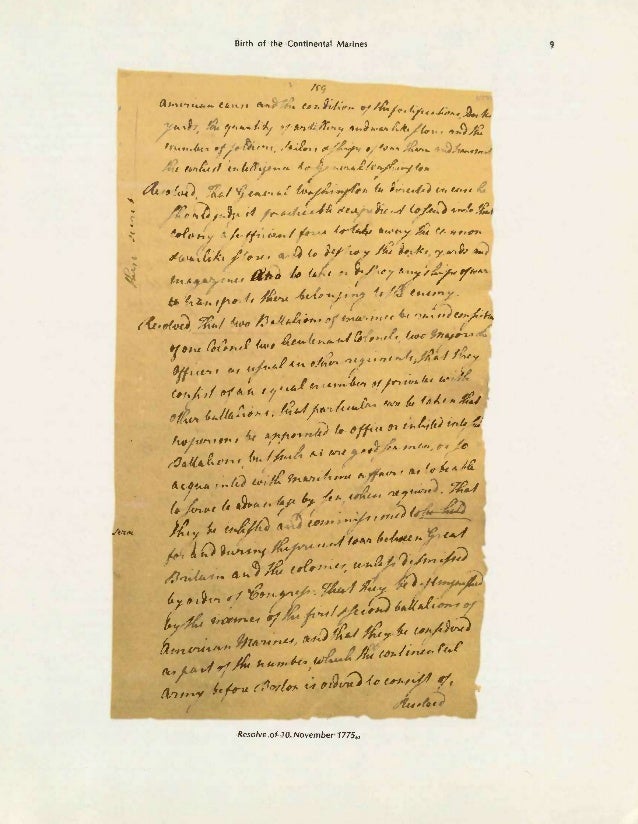 Birth of the Continental Marines
9
159
American cause and the condition of the fortifications, Dock
yards, the quantity of artillery and warlike stores and the
number of soldiers, sailors & ships of war there and transmit
the earliest intelligence to General Washington
Resolved, That General Washington be directed in case he
should judge it practicable & expedient to send into that
colony a sufficient force to take away the cannon
& warlike stores and to destroy the docks, yards and
magazines and to take or destroy any ships of war
& transports there belonging to the enemy.
Resolved That two Battalions of marines be raised consisting
of one Colonel two lieutenant Colonels, two Majors &
Officers as usual in other regiments, that they
consist of an equal number of privates with
other battalions; that particular care be taken that
no persons be appointed to office or inlisted into sd
Battalions, but such as are good seamen, or so
acquainted with maritime affairs as to be able
to serve to advantage by sea, when required. That
they be inlisted and commissioned to be held
for and during the present war between Great
Britain and the colonies, unless dismissed
by order of Congress. That they be distinguished
by the names of the first & second battalions of
American Marines, and that they be considered
as part of the number, which the continental
Army before Boston is ordered to consist of.
Resolved
Resolve of 10 November 1775